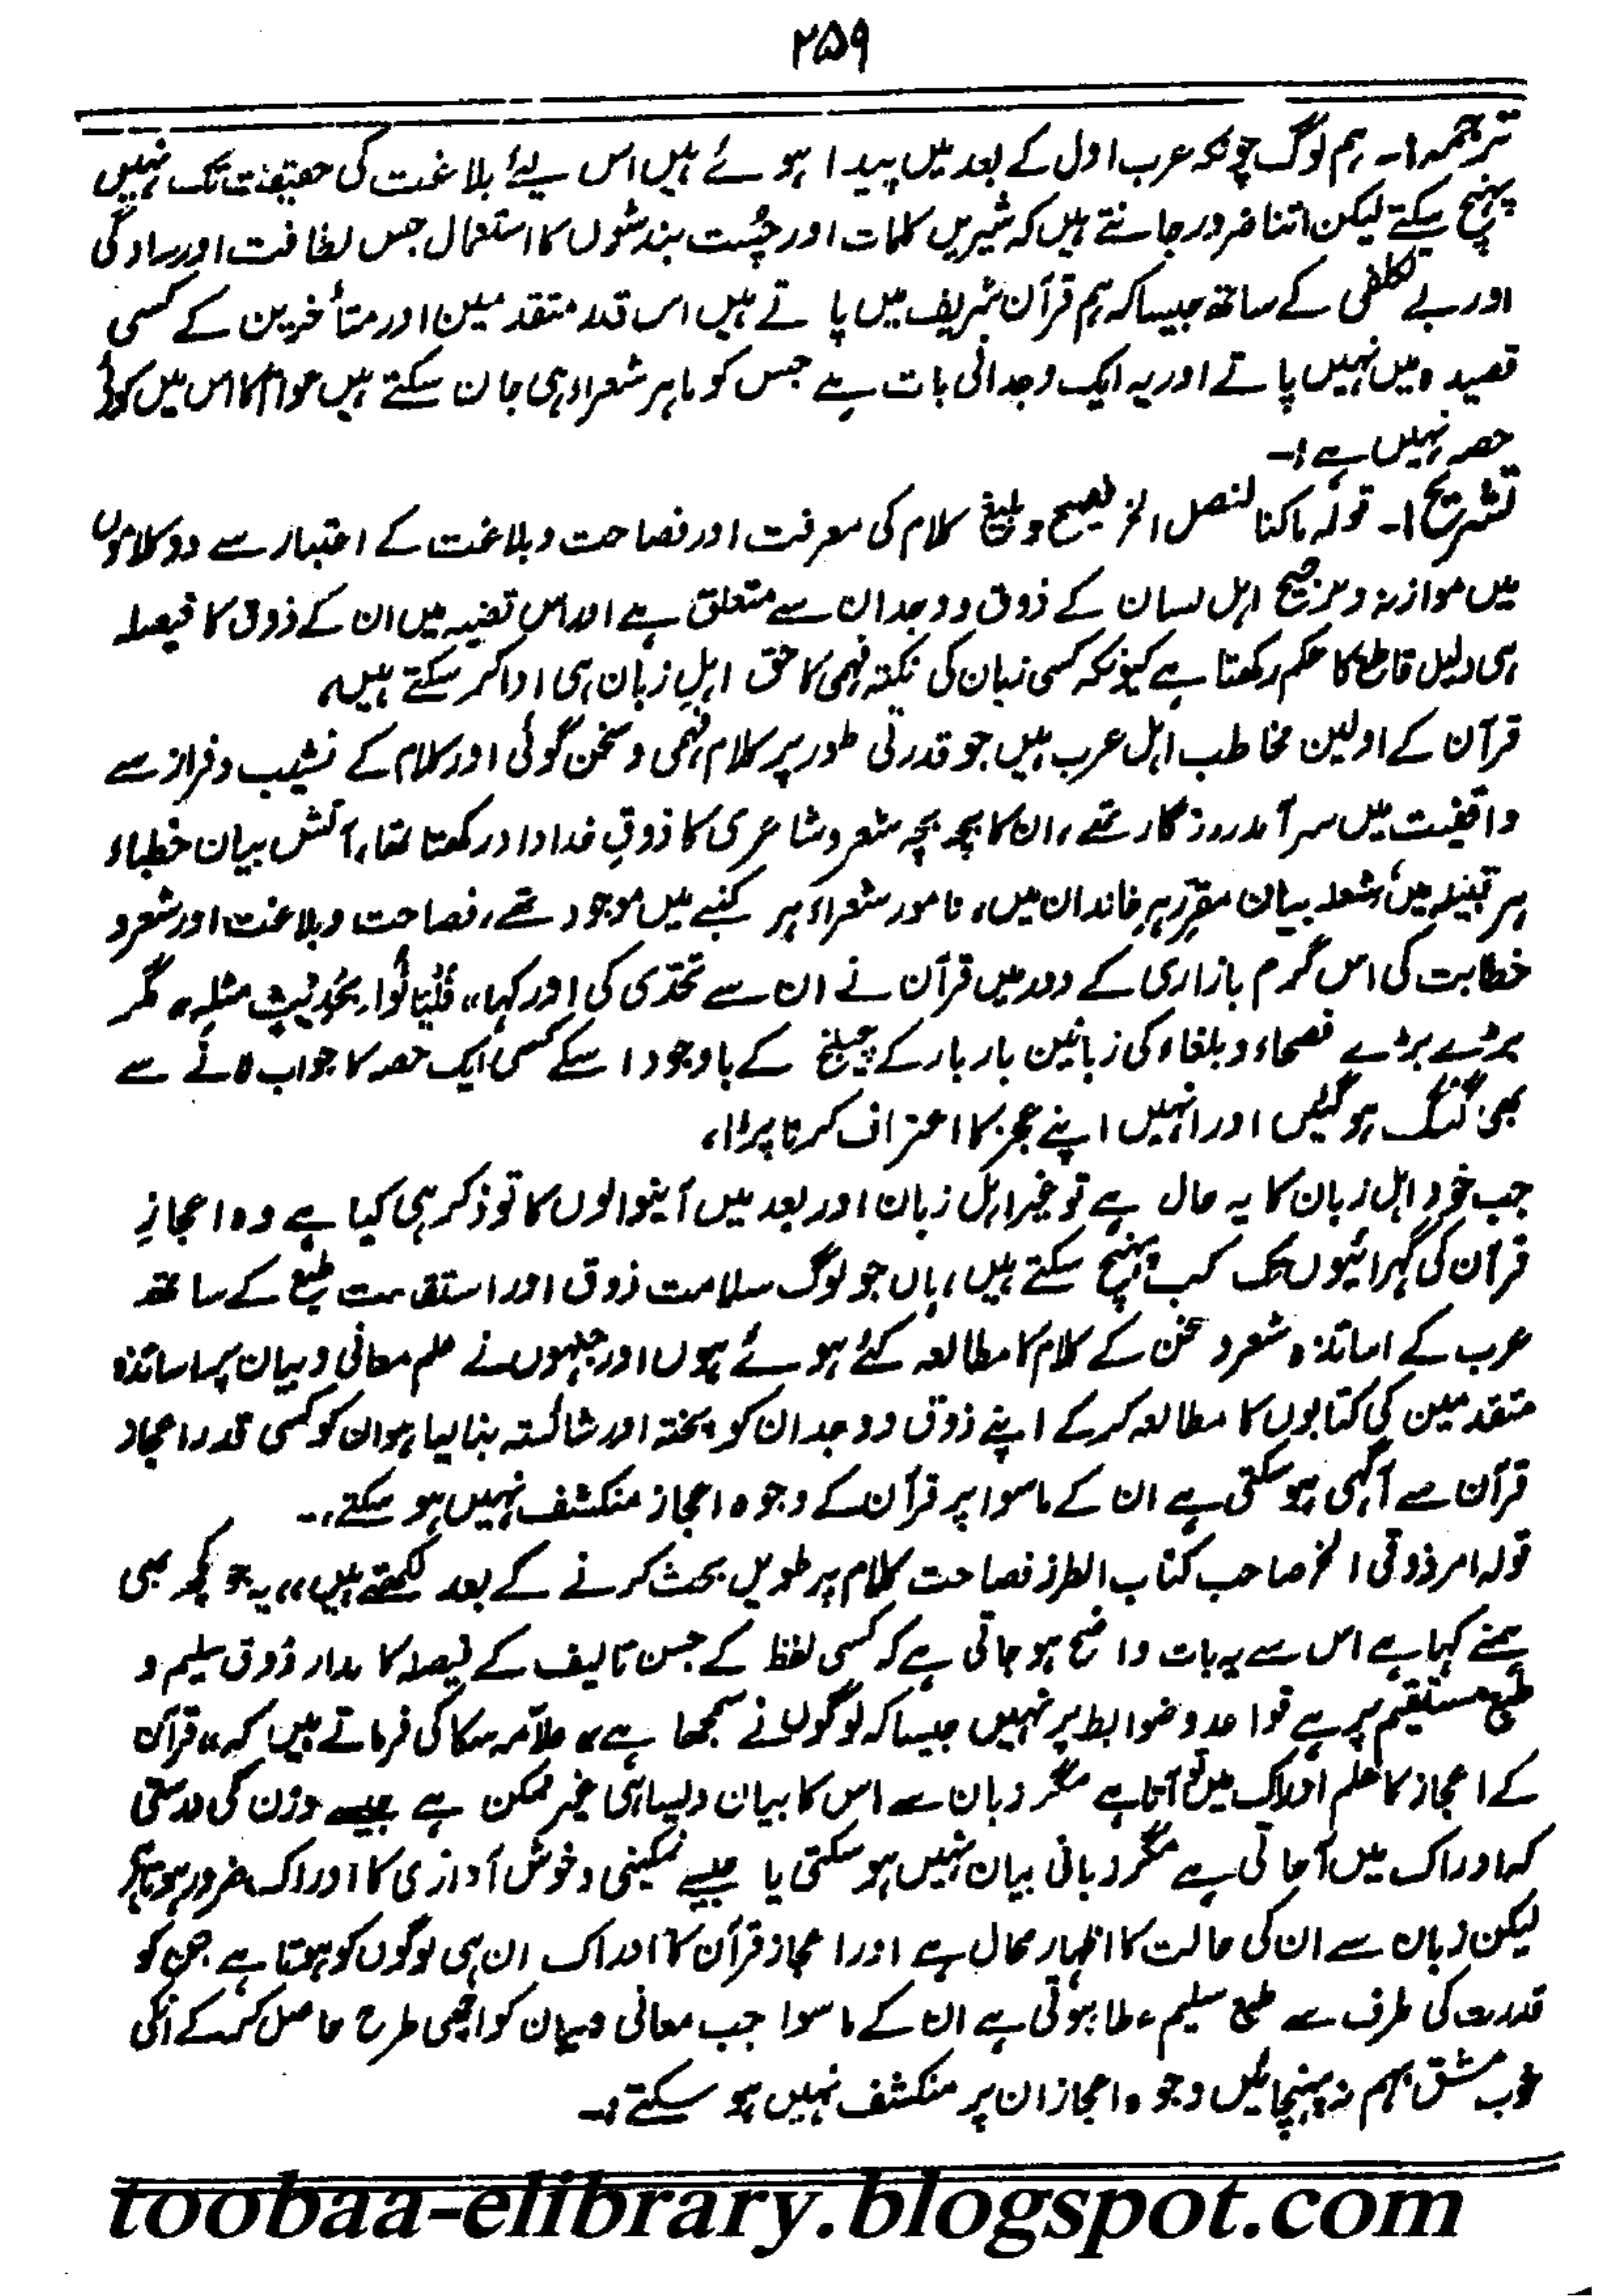 ۲۵۹
ترجمہ:۔ ہم لوگ چونکہ عرب اول کے بعد میں پیدا ہوئے ہیں اس لیئے بلاغت کی حقیقت تک نہیں
پہنچ سکتے لیکن اتنا ضرور جانتے ہیں کہ شیریں کلمات اور چُست بندشوں کا استعمال جس لطافت اور سادگی
اور بے تکلفی کے ساتھ جیسا کہ ہم قرآن شریف میں پاتے ہیں اس قدر متقدمین اور متأخرین کے کسی
قصیدہ میں نہیں پاتے اور یہ ایک وجدانی بات ہے جس کو ماہر شعراء ہی جان سکتے ہیں عوام کا اس میں کوئی
حصہ نہیں ہے:۔
تشریح:۔ قولہ ماکنا لنصل الخ فصیح و بلیغ کلام کی معرفت اور فصاحت و بلاغت کے اعتبار سے دو کلاموں
میں موازنہ و ترجیح اہل لسان کے ذوق و وجدان سے متعلق ہے اور اس قضیہ میں ان کے ذوق کا فیصلہ
ہی دلیل قاطع کا حکم رکھتا ہے کیونکہ کسی زبان کی نکتہ فہمی کا حق اہلِ زبان ہی ادا کر سکتے ہیں،
قرآن کے اولین مخاطب اہل عرب ہیں جو قدرتی طور پر کلام فہمی و سخن گوئی اور کلام کے نشیب و فراز سے
واقفیت میں سرآمد روزگار تھے، ان کا بچہ بچہ شعر و شاعری کا ذوقِ خداداد رکھتا تھا، آتش بیان خطباء
ہر قبیلہ میں، شعلہ بیان مقرِّر ہر خاندان میں، نامور شعراء ہر کنبے میں موجود تھے، فصاحت و بلاغت اور شعر و
خطابت کی اس گرم بازاری کے دور میں قرآن نے ان سے تحدّی کی اور کہا،، فَلْیَاتُوْا بِحَدِیْثٍ مثلِہٖ،، مگر
بڑے بڑے فصحاء و بلغاء کی زبانین بار بار کے چیلنج کے باوجود اسکے کسی ایک حصہ کا جواب لانے سے
بھی گنگ ہو گئیں اور انہیں اپنے عجز کا اعتراف کرنا پڑا،
جب خود اہل زبان کا یہ حال ہے تو غیر اہل زبان اور بعد میں آنیوالوں کا تو ذکر ہی کیا ہے وہ اعجازِ
قرآن کی گہرائیوں تک کب پہنچ سکتے ہیں، ہاں جو لوگ سلامت ذوق اور استقامت طبع کے ساتھ
عرب کے اساتذہ شعر و سخن کے کلام کا مطالعہ کئے ہوئے ہوں اور جنہوں نے علم معانی و بیان پر اساتذہ
متقدمین کی کتابوں کا مطالعہ کرکے اپنے ذوق و وجدان کو پختہ اور شائستہ بنا لیا ہو ان کو کسی قدر اعجاز
قرآن سے آگہی ہو سکتی ہے ان کے ماسوا پر قرآن کے وجوہ اعجاز منکشف نہیں ہو سکتے:۔
قولہ امر ذوقی الخ صاحب کتاب الطراز فصاحت کلام پر طویل بحث کرنے کے بعد لکھتے ہیں،، یہ جو کچھ بھی
ہمنے کہا ہے اس سے یہ بات واضح ہو جاتی ہے کہ کسی لفظ کے حسن تالیف کے فیصلہ کا مدار ذوق سلیم و
طبع مستقیم پر ہے قواعد و ضوابط پر نہیں جیسا کہ لوگوں نے سمجھا ہے،، علاّمہ سکاکی فرماتے ہیں کہ،، قرآن
کے اعجاز کا علم ادراک میں تو آتا ہے مگر زبان سے اس کا بیان ویسا ہی غیر ممکن ہے جیسے وزن کی درستی
کہ ادراک میں آجاتی ہے مگر زبانی بیان نہیں ہو سکتی یا جیسے نمکینی و خوش آوازی کا ادراک ضرور ہوتا ہے
لیکن زبان سے ان کی حالت کا اظہار محال ہے اور اعجاز قرآن کا ادراک ان ہی لوگوں کو ہوتا ہے جن کو
قدرت کی طرف سے طبع سلیم عطا ہوتی ہے ان کے ماسوا جب معانی و بیان کو اچھی طرح حاصل کرکے انکی
خوب مشق بہم نہ پہنچائیں وجوہ اعجاز ان پر منکشف نہیں ہو سکتے:۔
toobaa-elibrary.blogspot.com